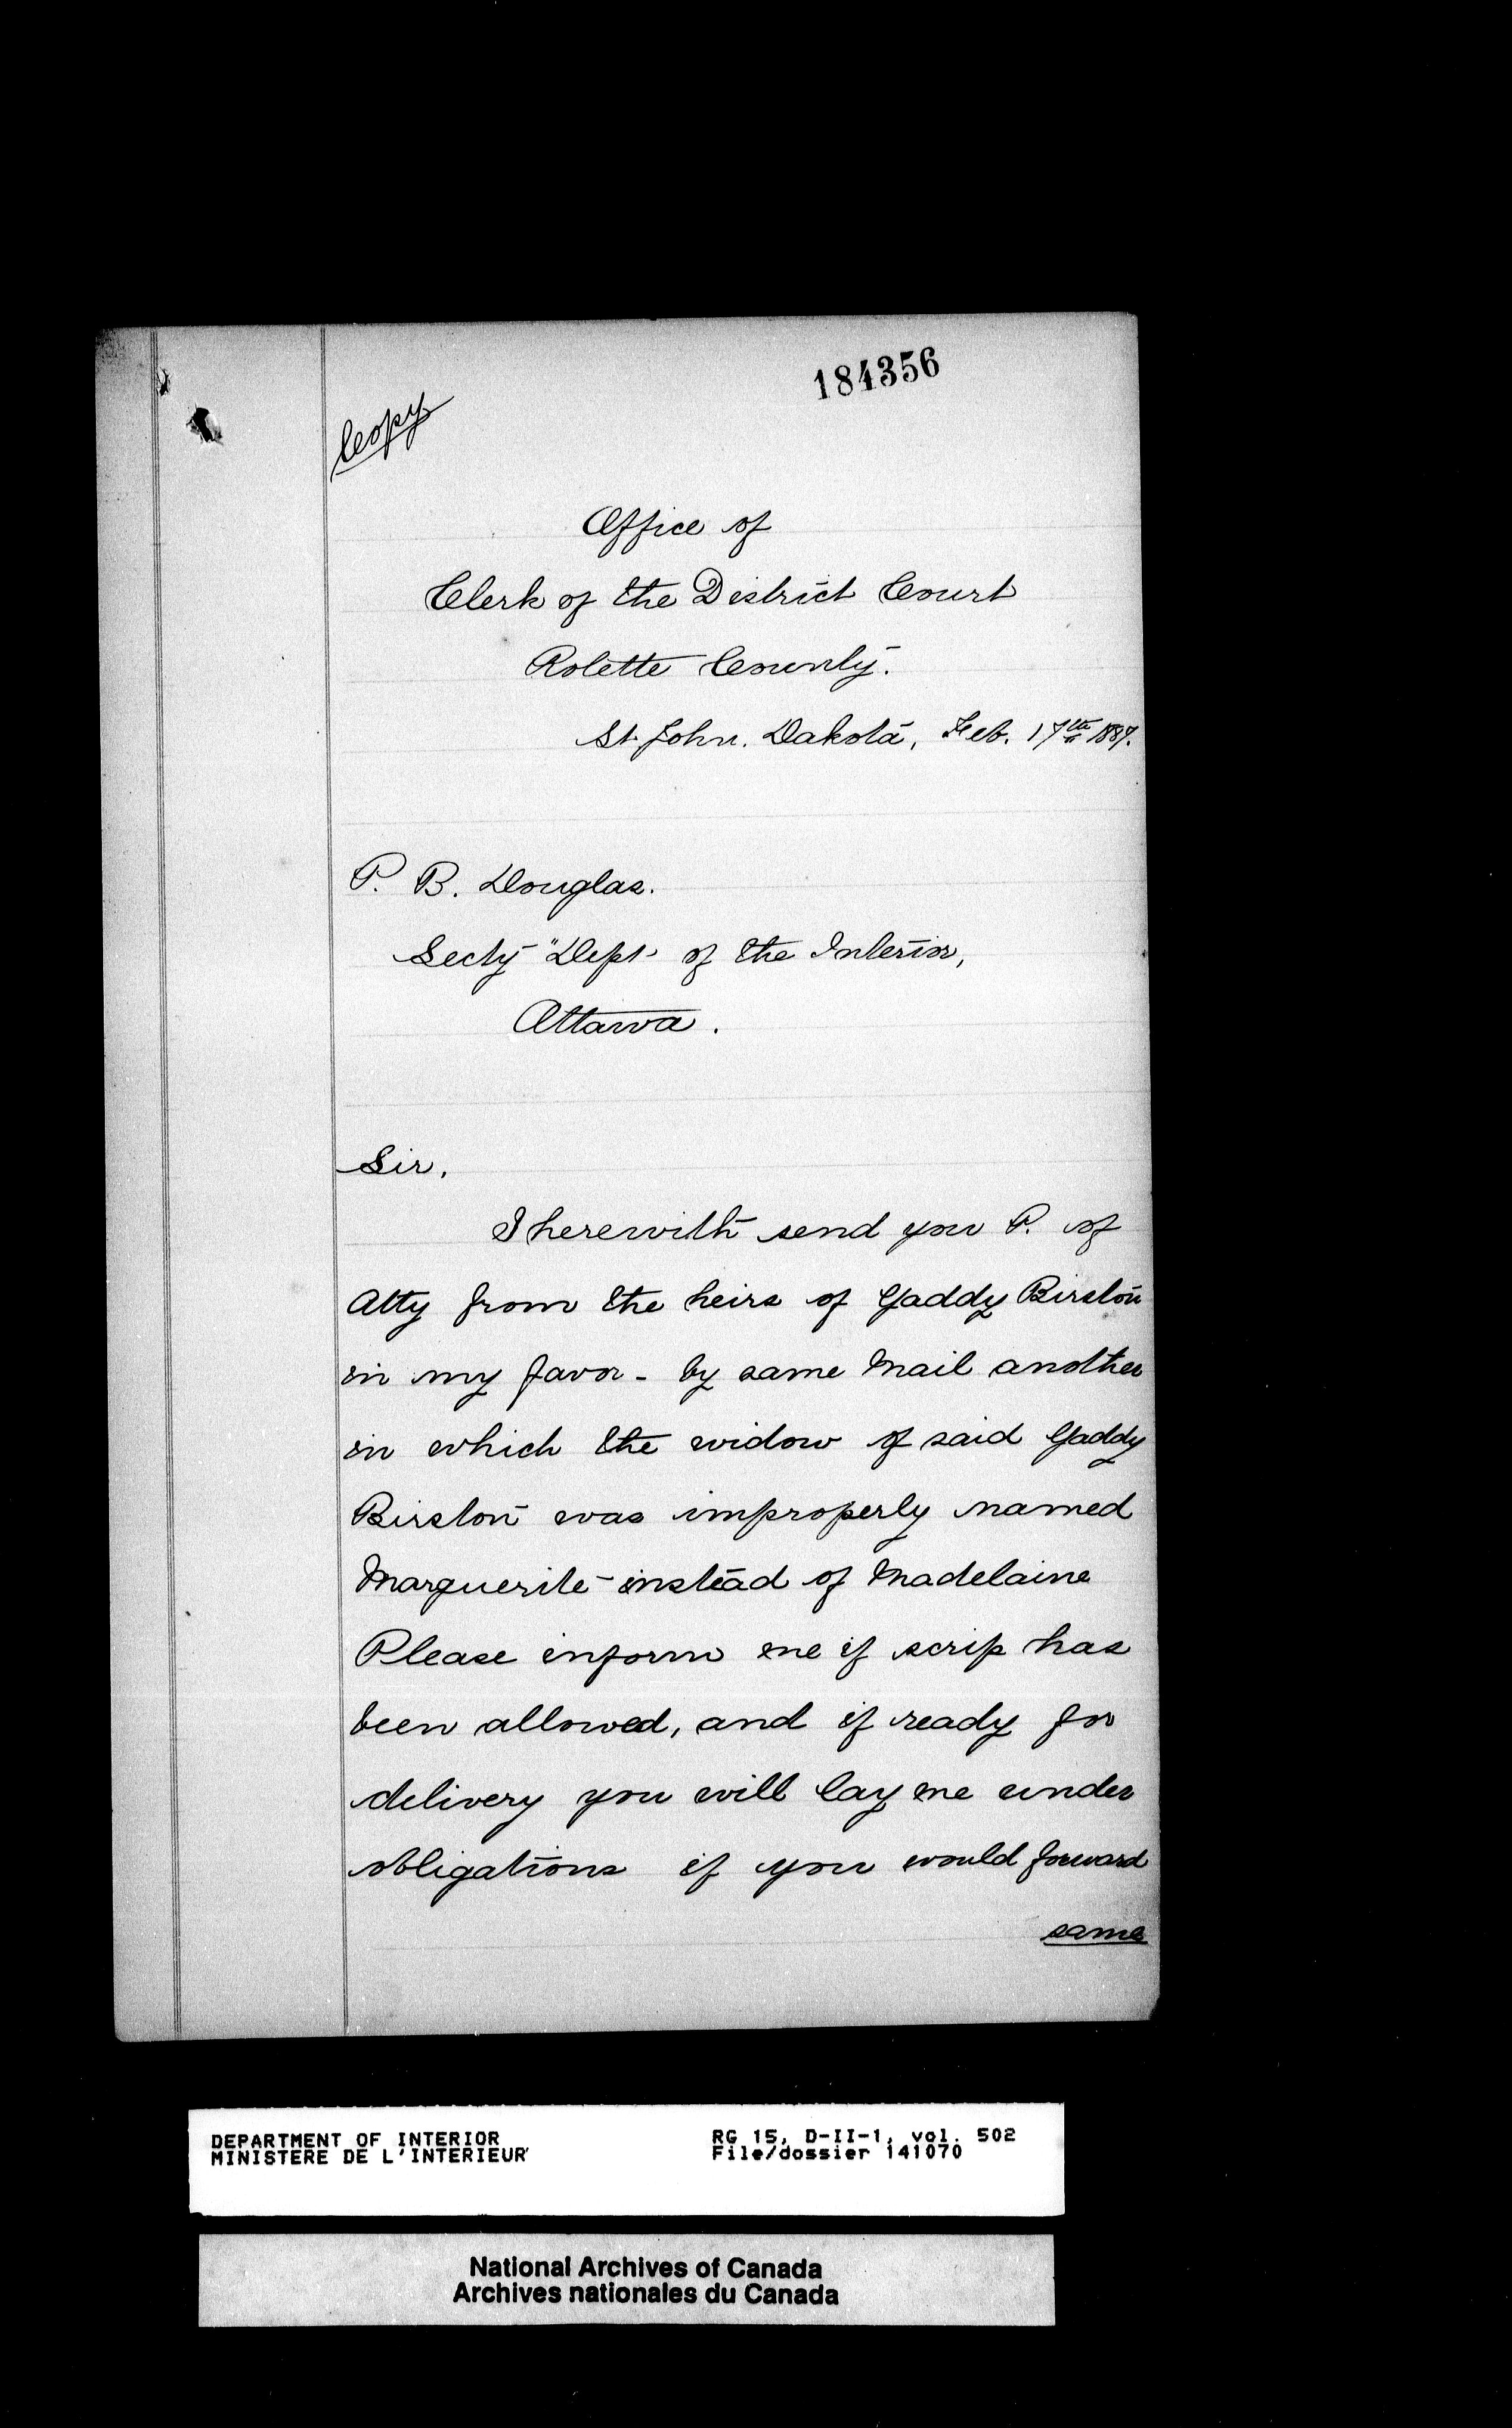 184356
Copy
Office of
Clerk of the District Court
Rolette County.
St. John. Dakota, Feb. 17th 1887.
P. B. Douglas.
Secty "Dept of the Interior,
Ottawa.
Sir,
I herewith send you P. of
Atty from the heirs of Gaddy Birston
in my favor - by same Mail another
in which the widow of said Gaddy
Birston was improperly named
Marguerite instead of Madelaine
Please inform me if scrip has
been allowed, and if ready for
delivery you will lay me under
obligations if you would forward
same
DEPARTMENT OF INTERIOR
MINISTERE DE L'INTERIEUR
RG 15, D-II-1, vol. 502
File/dossier 141070
National Archives of Canada
Archives nationales du Canada